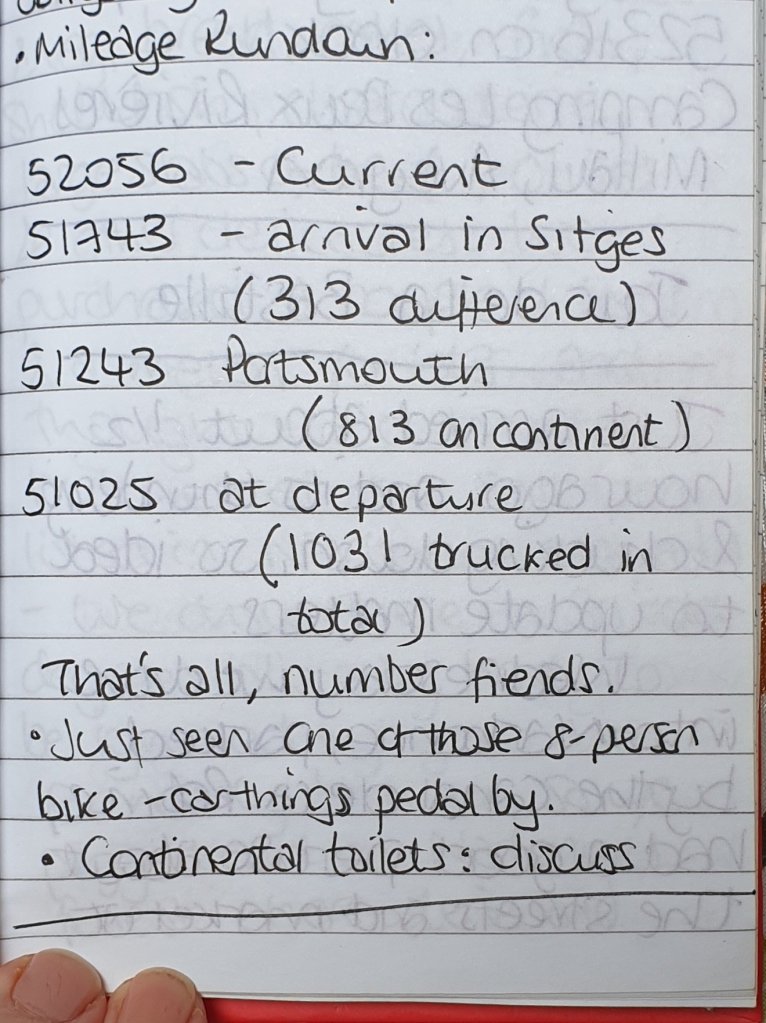 • Mileage Rundown:
52056 - Current
51743 - arrival in Sitges
(313 difference)
51243 Portsmouth
(813 on continent)
51025 at departure
(1031 trucked in
total)
That's all, number fiends.
• Just seen one of those 8-person
bike-car things pedal by.
• Continental toilets: discuss